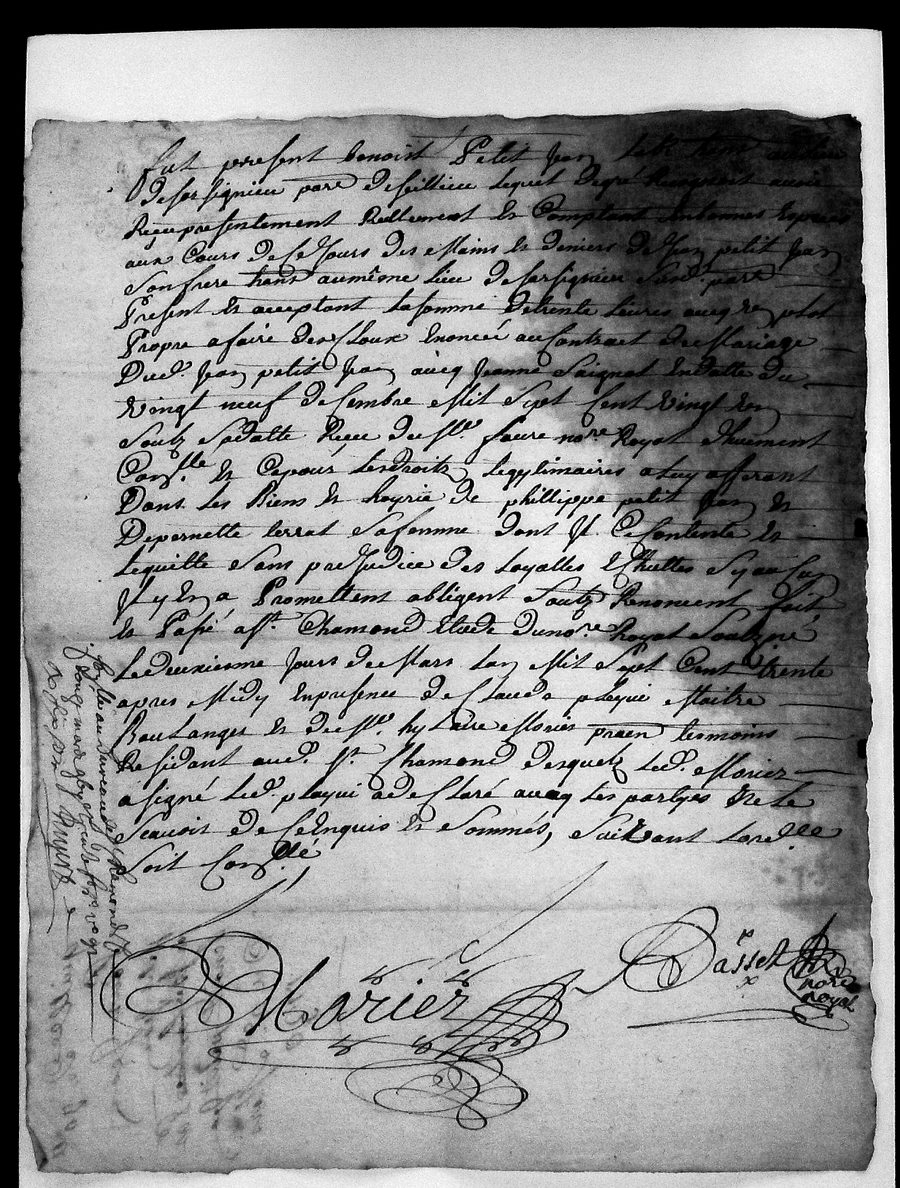 fut present benoist Petit Jean
de sersignieu parr. de seillieu lequel de gré
Reeu presentement Rellement Et Comptant
aux Cours de Ce Jours des Mains Et deniers de Jean petit Jean
Son frere aumême lieu de sersignieu
Present Et aceptant la somme de trente livres
Propre afaire des Cloux Enoncée au Contract de Mariage
Dud. Jean petit Jean avecq Jeanne Saignol En datte du
Vingt neuf decembre Mil Sept Cent Vingt
Soutz Sa datte Reeu de Me. faure nore Royal duement
Conllé Et Cepour les droitz legytimaires a luy afferant
Dans les Biens Et hoyrie de phillippe petit Jean Et
De pernette terrat Sa femme dont Il Ce Contente Et
Lequitte Sans preJudice des Loyalles Echuttes Sy aucun
Il y En a Promettent obligent Soutz Renoncent fait
Et Passé a St. Chamond Etude du nore Royal Soutz né
Le deuxiesme Jours de Mars lan Mil Sept Cent trente
apres Midy En presence de Claude playui Maitre
Boulanger Et de Me. hylaire Morier praen temoins
Residant aud. St. Chamond desquelz led. Morier
a signé led. playui a declaré avecq les partyes Ne le
Scavoir de Ce Enquis Et Sommés, Suivant lorddce
Soit Conllé
Morier
Basset
nore
royal